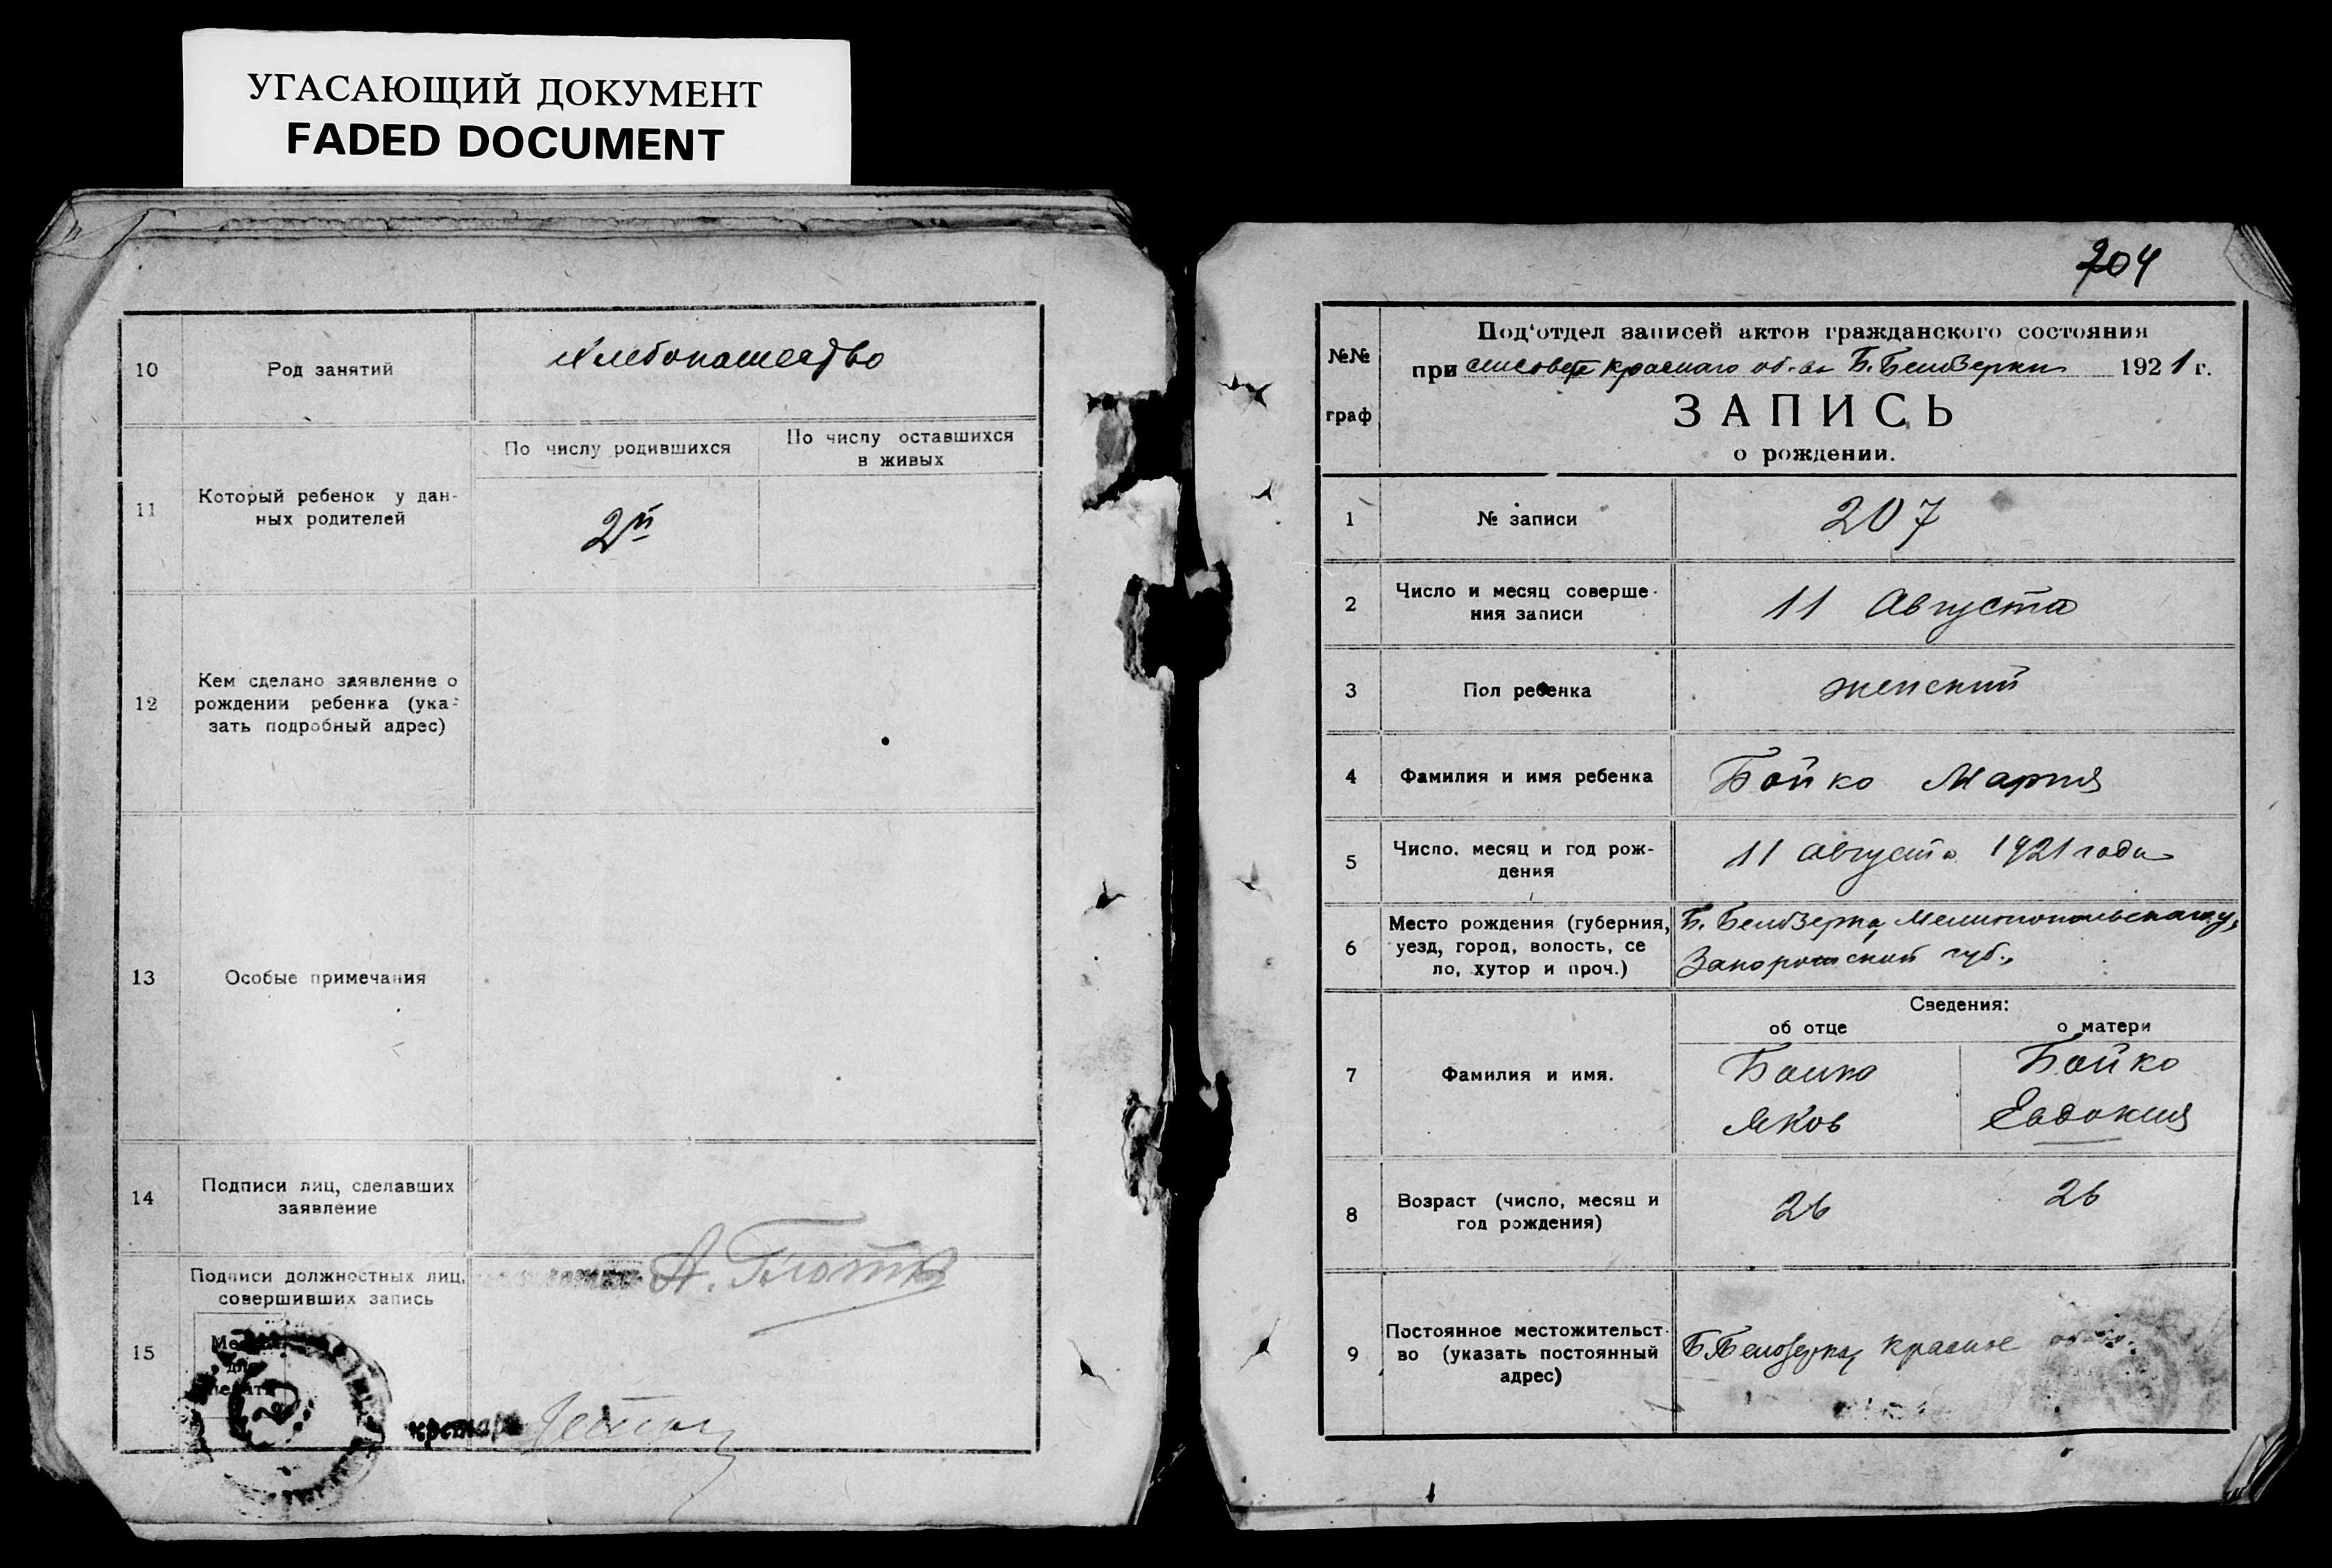 УГАСАЮЩИЙ ДОКУМЕНТ
FADED DOCUMENT
10
Род занятий
Хлебопашество
11
Который ребенок у дан-
ных родителей
По числу родившихся
По числу оставшихся
в живых
2й
12
Кем сделано заявление о
рождении ребенка (ука-
зать подробный адрес)
13
Особые примечания
14
Подписи лиц, сделавших
заявление
15
Подписи должностных лиц,
совершивших запись
А.
Место
для
печати
204
№№
граф
Под'отдел записей актов гражданского состояния
при Краснаго об-ва Б. Белозерки 1921 г.
ЗАПИСЬ
о рождении.
1
№ записи
207
2
Число и месяц соверше-
ния записи
11 Августа
3
Пол ребенка
женский
4
Фамилия и имя ребенка
Бойко Мария
5
Число, месяц и год рож-
дения
11 августа 1921 года
6
Место рождения (губерния,
уезд, город, волость, се
ло, хутор и проч.)
Б. Белозерка, Мелитопольскаго у,
Запорожской губ.,
Сведения:
об отце
о матери
7
Фамилия и имя.
Бойко
Яков
Бойко
Евдокия
8
Возраст (число, месяц и
год рождения)
26
26
9
Постоянное местожительст-
во (указать постоянный
адрес)
Б. Белозерка, Красное